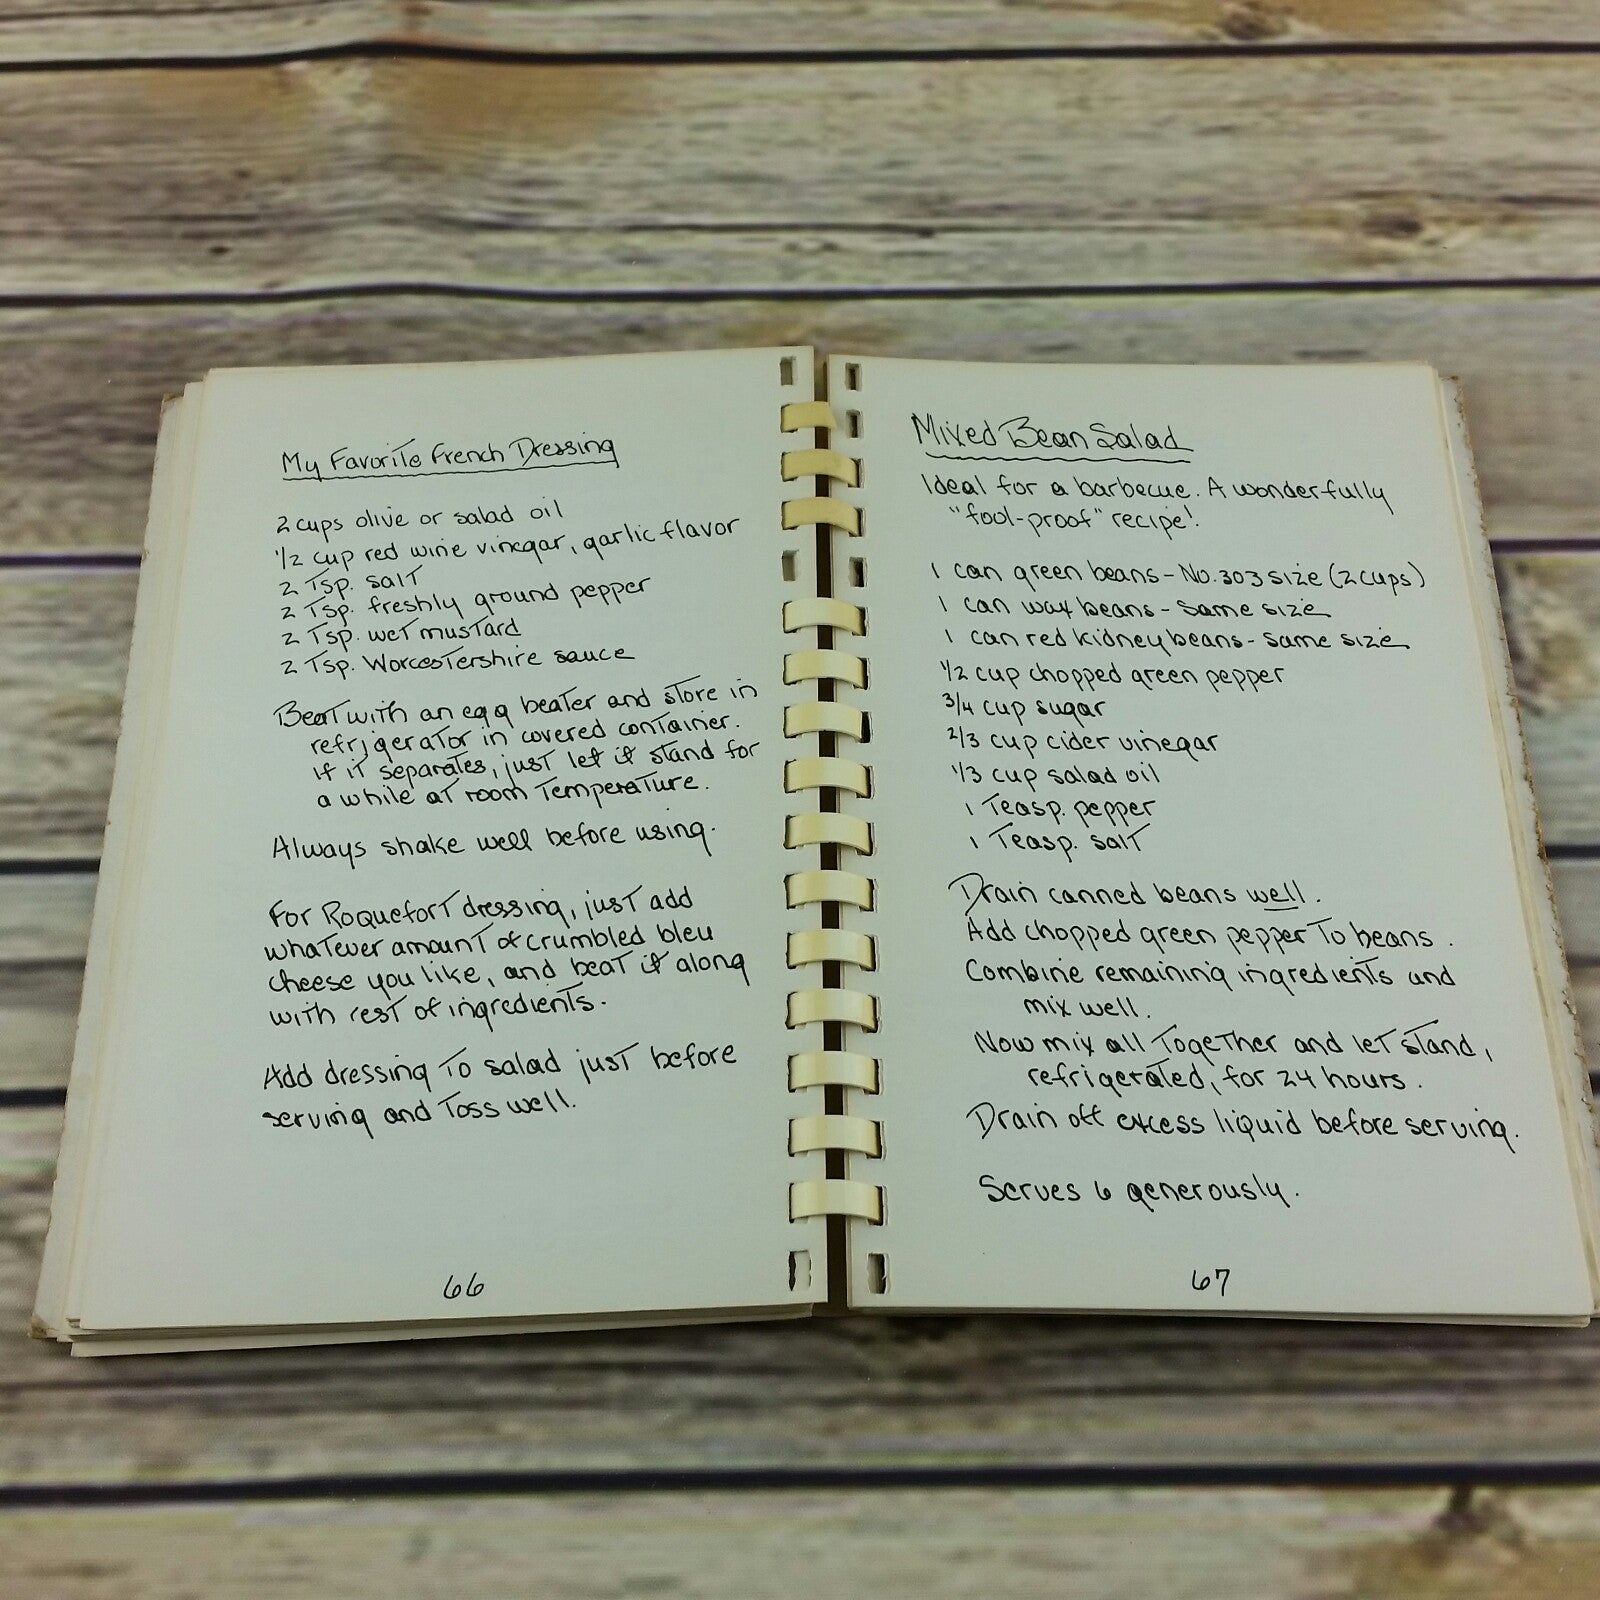 My Favorite French Dressing
2 cups olive or salad oil
1/2 cup red wine vinegar, garlic flavor
2 Tsp. salt
2 Tsp. freshly ground pepper
2 Tsp. wet mustard
2 Tsp. Worcestershire sauce
Beat with an egg beater and store in
refrigerator in covered container.
If it separates, just let it stand for
a while at room temperature.
Always shake well before using.
For Roquefort dressing, just add
whatever amount of crumbled bleu
cheese you like, and beat it along
with rest of ingredients.
Add dressing to salad just before
serving and toss well.
66
Mixed Bean Salad
Ideal for a barbecue. A wonderfully
"fool-proof" recipe!
1 can green beans - No. 303 size (2 cups)
1 can wax beans - same size
1 can red kidney beans - same size
1/2 cup chopped green pepper
3/4 cup sugar
2/3 cup cider vinegar
1/3 cup salad oil
1 Teasp. pepper
1 Teasp. salt
Drain canned beans well.
Add chopped green pepper to beans.
Combine remaining ingredients and
mix well.
Now mix all together and let stand,
refrigerated, for 24 hours.
Drain off excess liquid before serving.
Serves 6 generously.
67